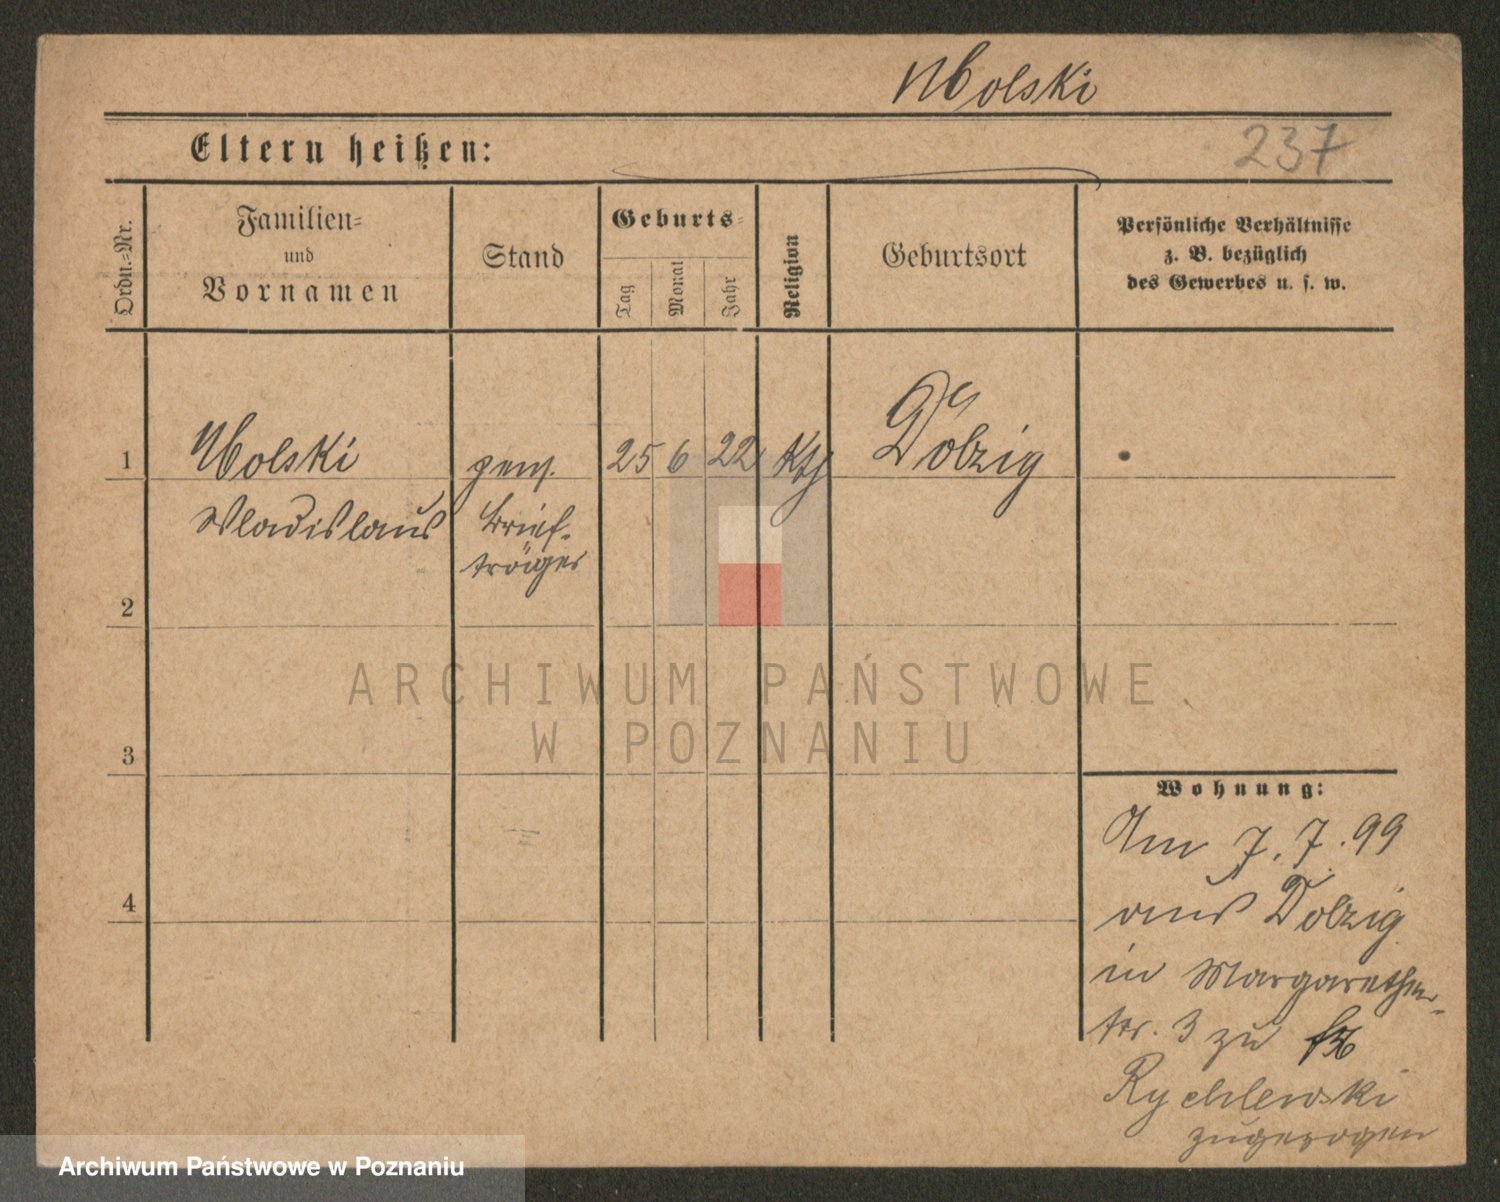 Molski
237
Eltern heißen:
Ordn.-Nr.
Familien-
und
Vornamen
Stand
Geburts-
Tag
Monat
Jahr
Religion
Geburtsort
Persönliche Verhältnisse
z. B. bezüglich
des Gewerbes u. s. w.
1
Molski
pens.
25 6 22
Kth
Dolzig
Wladislaus
Brief-
träger
2
ARCHIWUM PAŃSTWOWE
W POZNANIU
3
Wohnung:
Am 7.7.99
aus Dolzig
4
in Margarethen-
str. 3 zu
Rychlewski
zugezogen
Archiwum Państwowe w Poznaniu